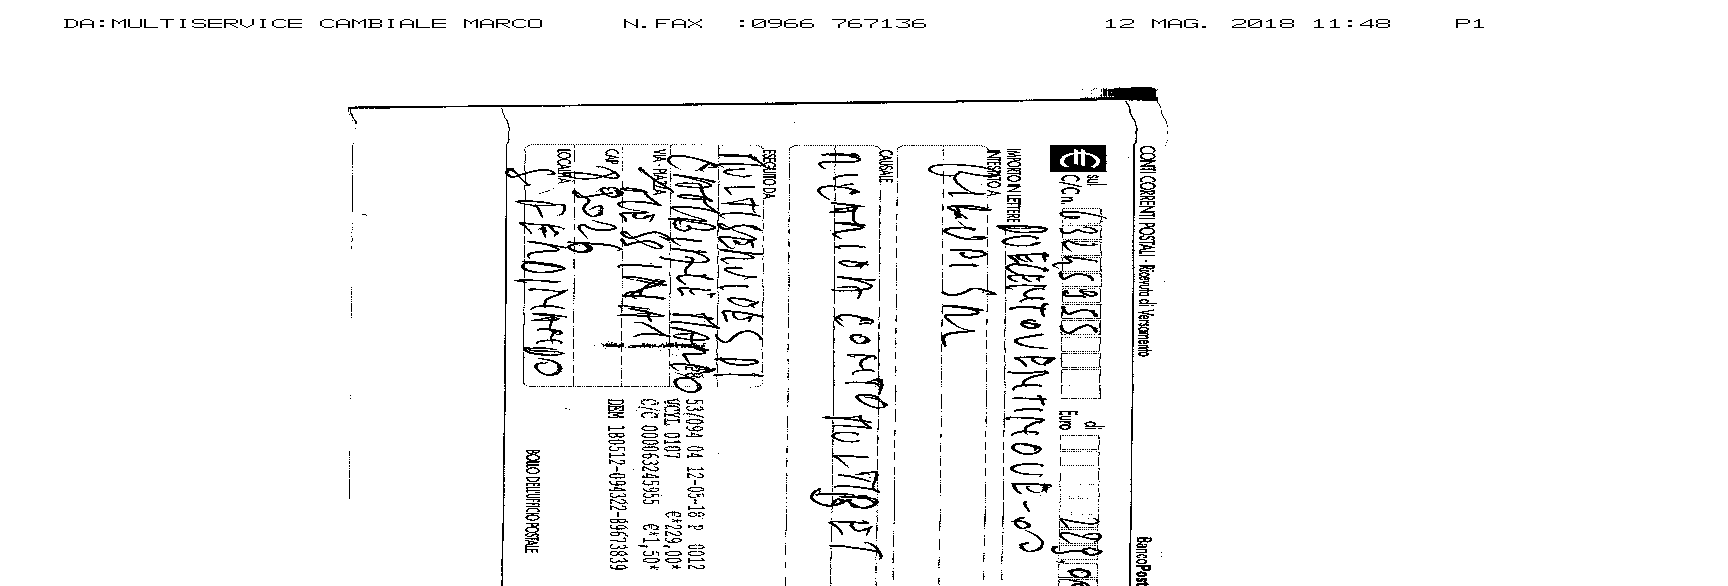 DA:MULTISERVICE CAMBIALE MARCO N.FAX :0966 767136 12 MAG. 2018 11:48 P1
CONTI CORRENTI POSTALI - Ricevuta di Versamento BancoPost
€ sul C/C n. 63245955 di Euro 229,00
IMPORTO IN LETTERE DUECENTOVENTINOVE-00
INTESTATO A
CAUSALE
RICARICA CONTO MULTIBET
ESEGUITO DA
MULTISERVICES DI
CAMBIALE MARCO
VIA - PIAZZA MESSINA 1
CAP 89026
LOCALITÀ
S FERDINANDO
53/094 04 12-05-18 P 0012
VCYL 0107 €*229,00*
C/C 000063245955 €*1,50*
DBM 180512-094322-B9673839
BOLLO DELL'UFFICIO POSTALE